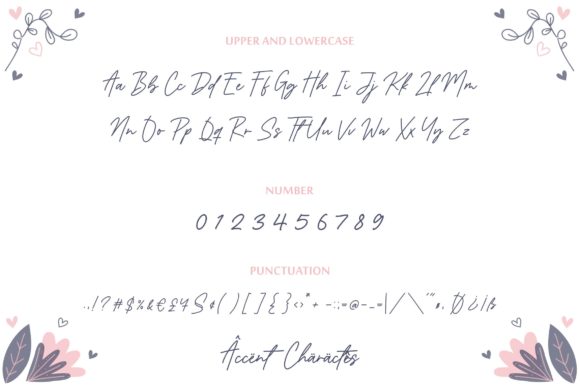 UPPER AND LOWERCASE
Aa Bb Cc Dd Ee Ff Gg Hh Ii Jj Kk Ll Mm
Nn Oo Pp Qq Rr Ss Tt Uu Vv Ww Xx Yy Zz
NUMBER
0 1 2 3 4 5 6 7 8 9
PUNCTUATION
.,!?#$%&€£¥S¢()[]{}<>*+-:;=@-_=|/\'"
Âccënt Chäräctës